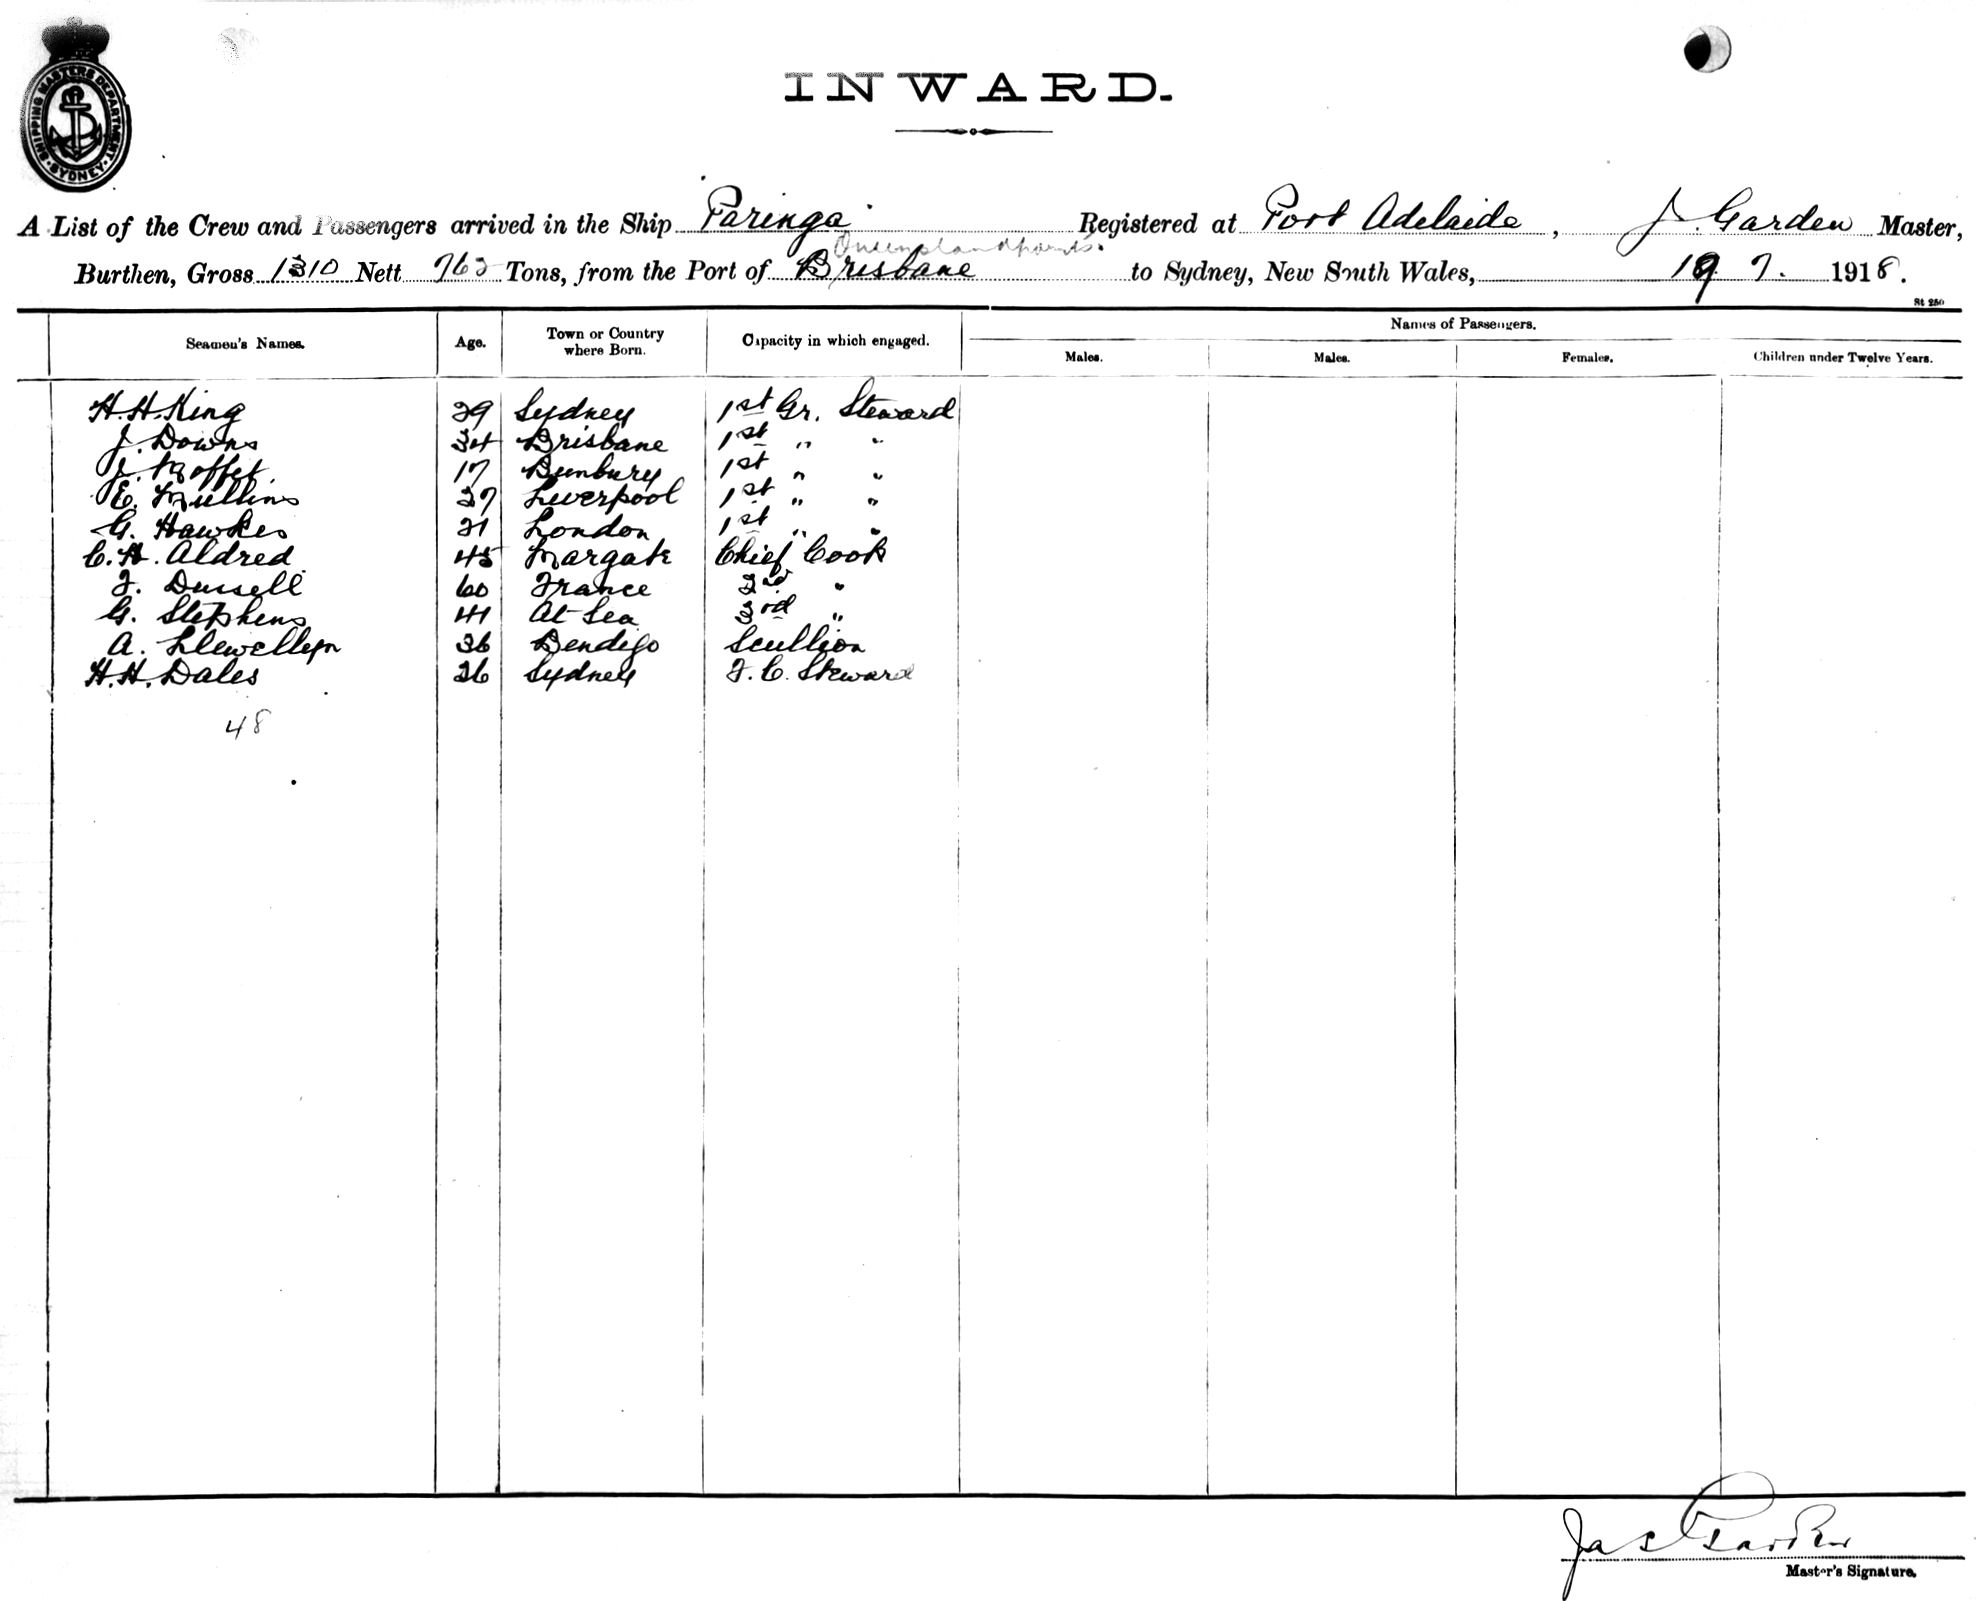 SHIPPING MASTERS DEPARTMENT
SYDNEY
INWARD.
A List of the Crew and Passengers arrived in the Ship Paringa Registered at Port Adelaide, J. Garden Master,
Queensland ports.
Burthen, Gross 1310 Nett 763 Tons, from the Port of Brisbane to Sydney, New South Wales, 19 7. 1918.
St 250
Seamen's Names. Age. Town or Country where Born. Capacity in which engaged. Names of Passengers.
Males. Males. Females. Children under Twelve Years.
H. H. King 29 Sydney 1st Gr. Steward
J. Downs 34 Brisbane 1st " "
J. Moffet 17 Bunbury 1st " "
E. Mullins 37 Liverpool 1st " "
G. Hawkes 21 London 1st " "
C. H. Aldred 45 Margate Chief Cook
F. Dussell 60 France 2nd "
G. Stephens 41 At Sea 3rd "
A. Llewellyn 36 Bendigo Scullion
H. H. Dales 26 Sydney F. C. Steward
48
Jas Garden
Master's Signature.